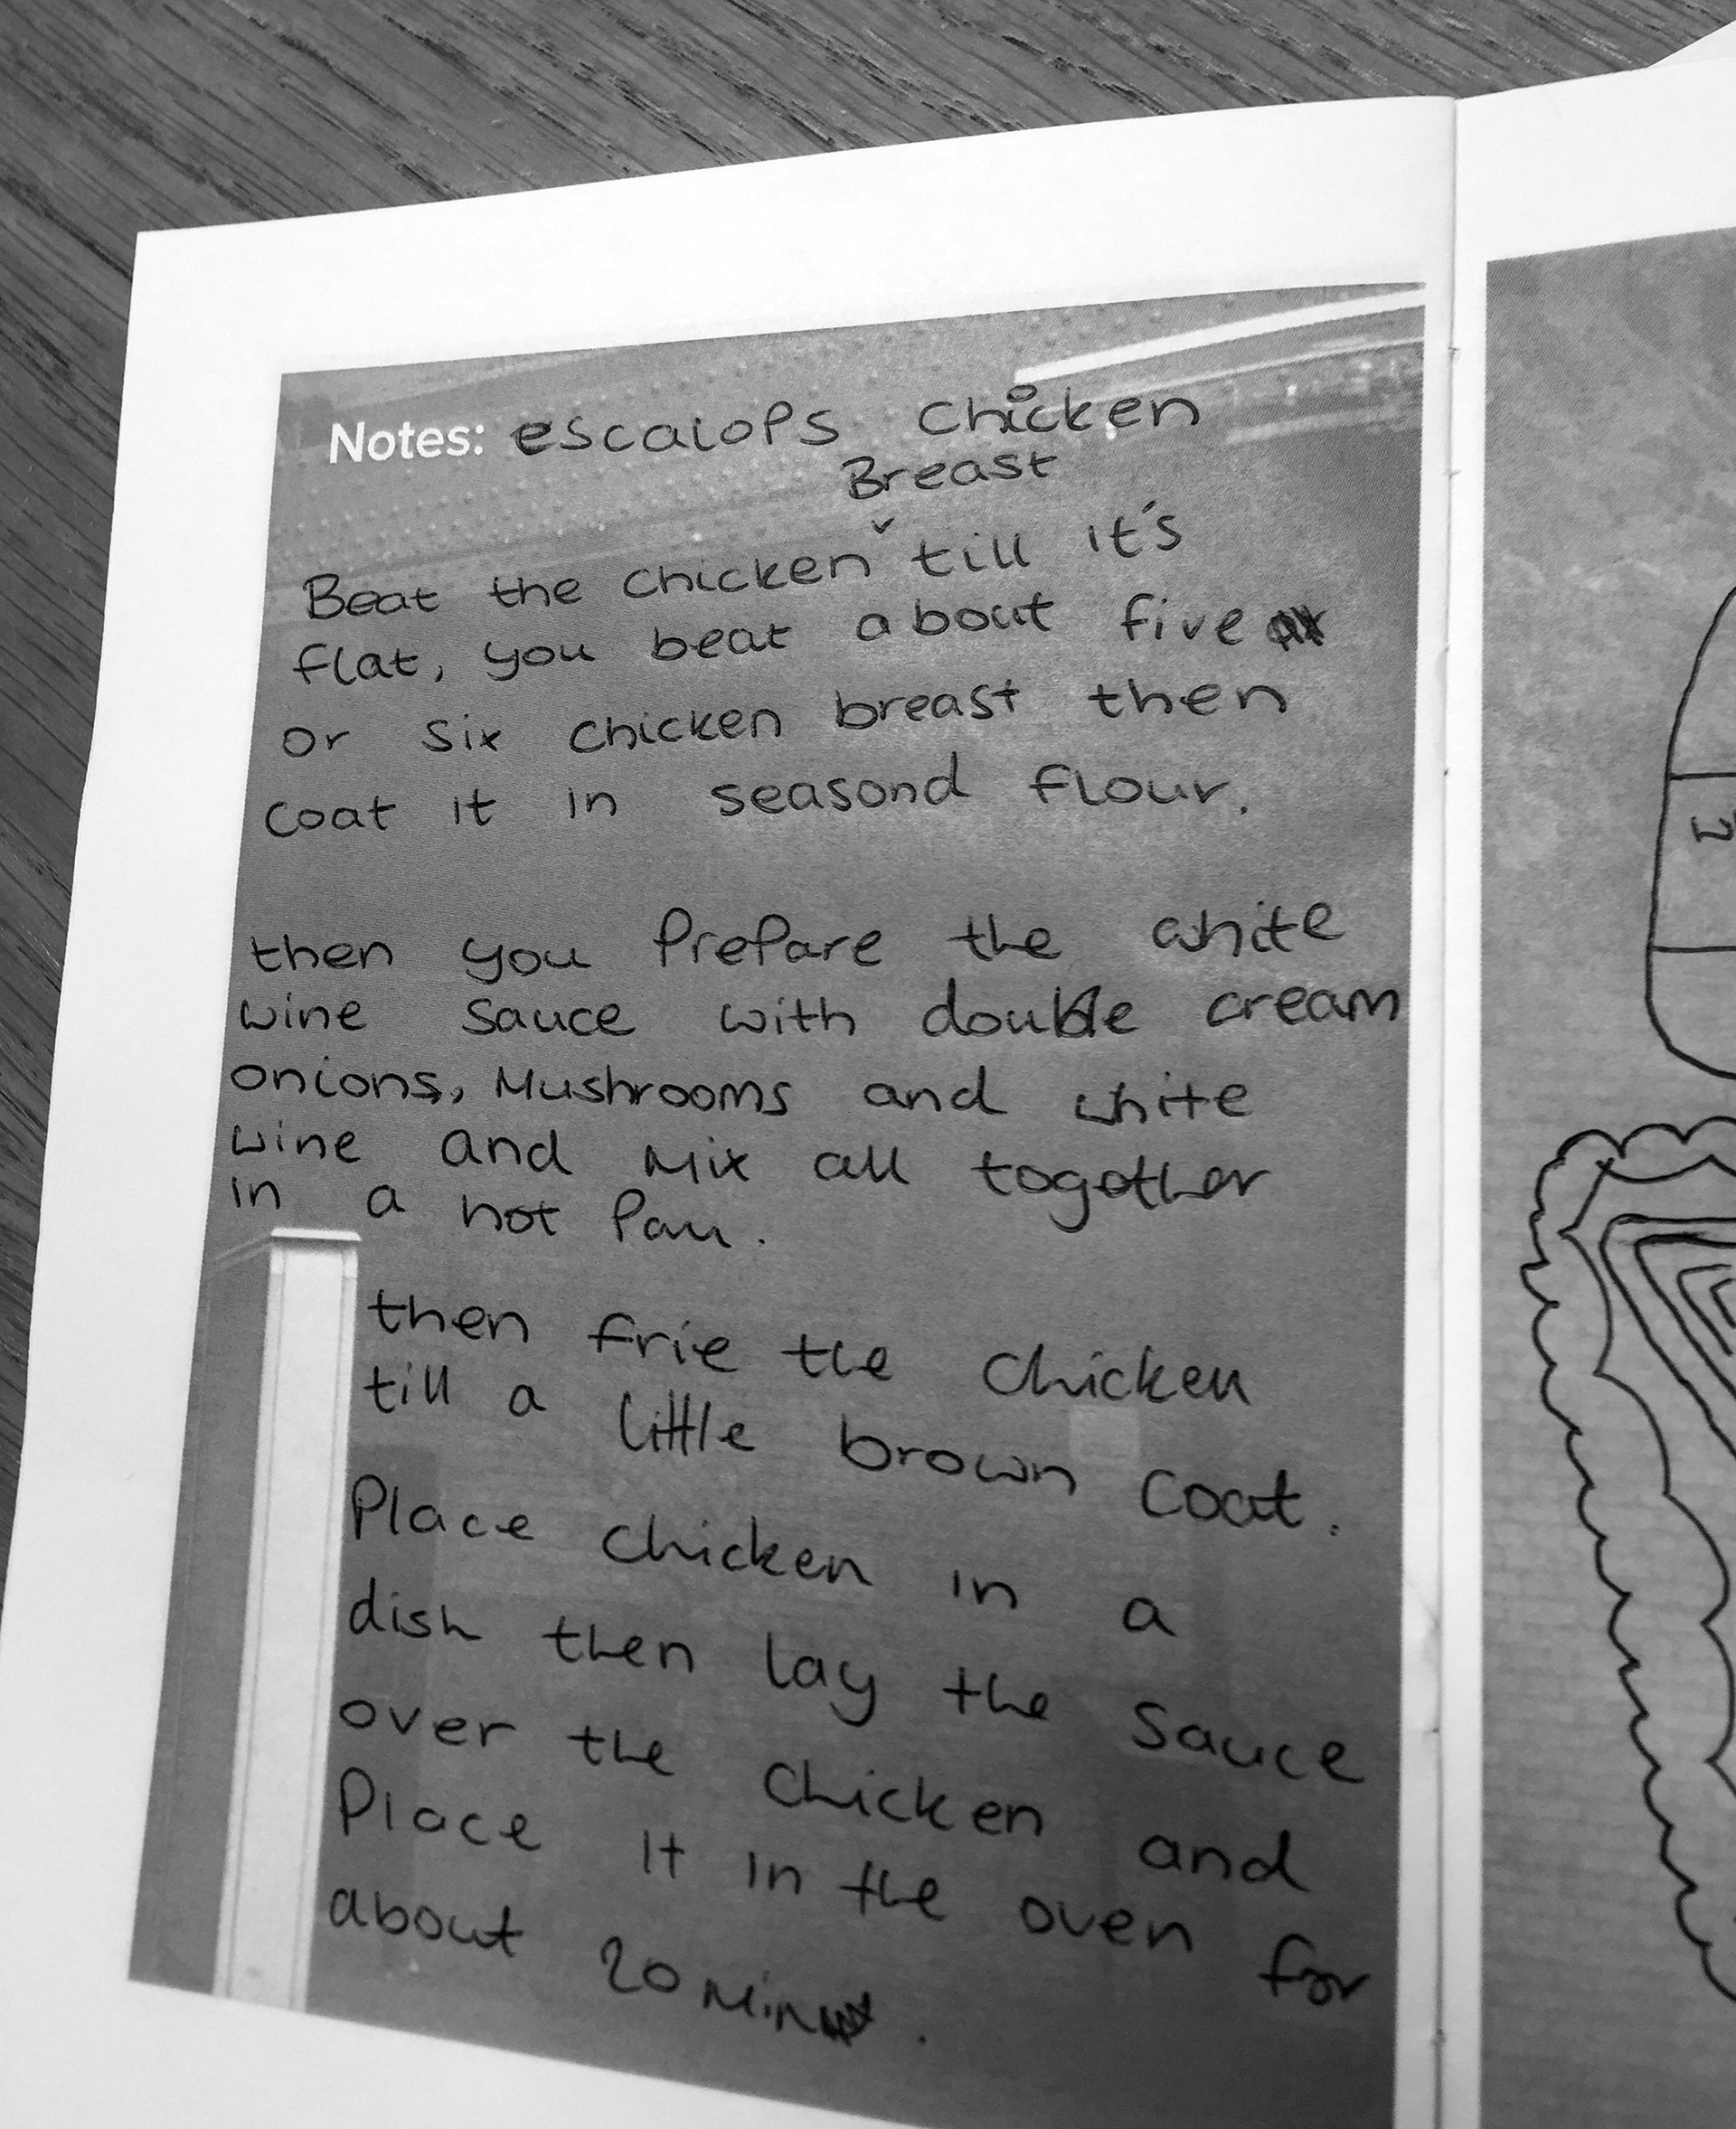 Notes: escalops chicken
Breast
Beat the chicken ˅ till it's
flat, you beat about five
or six chicken breast then
coat it in seasond flour.
then you Prepare the white
wine sauce with double cream
onions, Mushrooms and white
wine and Mix all together
in a hot Pan.
then frie the chicken
till a little brown coat.
Place chicken in a
dish then lay the sauce
over the chicken and
Place it in the oven for
about 20 Min.